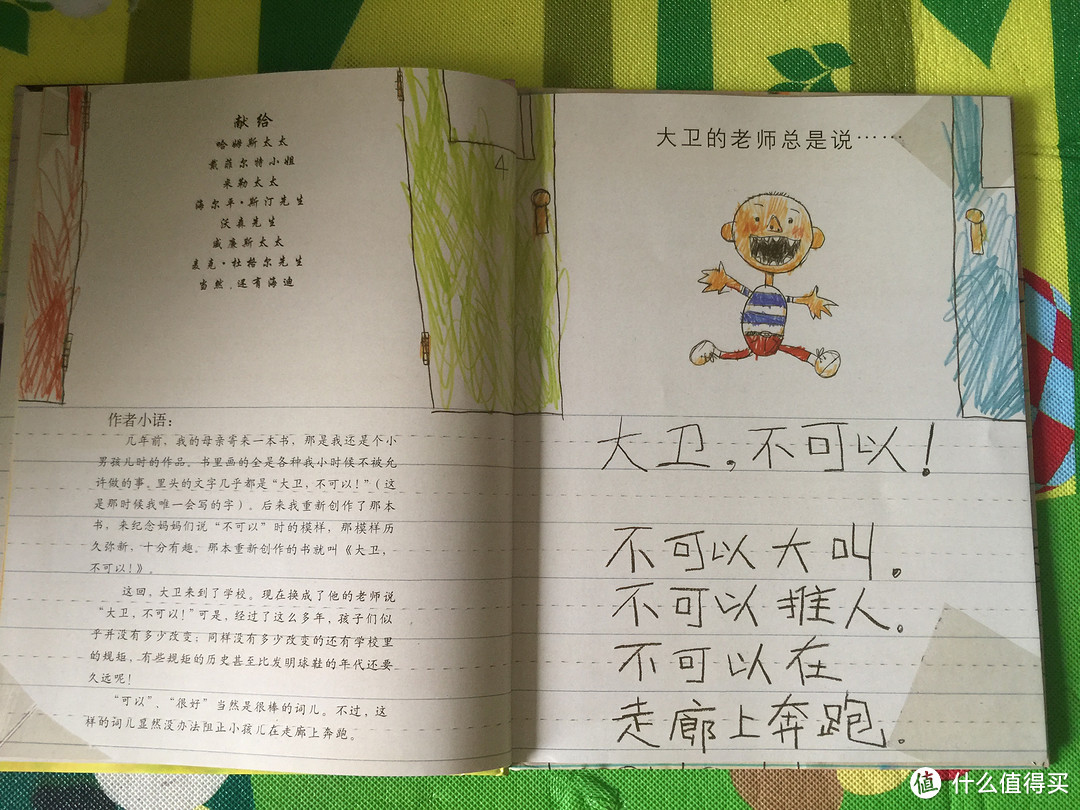 献给
哈姆斯太太
戴菲尔特小姐
米勒太太
海尔平·斯汀先生
沃森先生
威廉斯太太
麦克·杜格尔先生
当然，还有海迪
4
作者小语：
几年前，我的母亲寄来一本书，那是我还是个小
男孩儿时的作品。书里画的全是各种我小时候不被允
许做的事。里头的文字几乎都是“大卫，不可以！”（这
是那时候我唯一会写的字）。后来我重新创作了那本
书，来纪念妈妈们说“不可以”时的模样，那模样历
久弥新，十分有趣。那本重新创作的书就叫《大卫，
不可以！》。
这回，大卫来到了学校。现在换成了他的老师说
“大卫，不可以！”可是，经过了这么多年，孩子们似
乎并没有多少改变；同样没有多少改变的还有学校里
的规矩，有些规矩的历史甚至比发明球鞋的年代还要
久远呢！
“可以”、“很好”当然是很棒的词儿。不过，这
样的词儿显然没办法阻止小孩儿在走廊上奔跑。
大卫的老师总是说……
大卫，不可以！
不可以大叫。
不可以推人。
不可以在
走廊上奔跑。
值 什么值得买